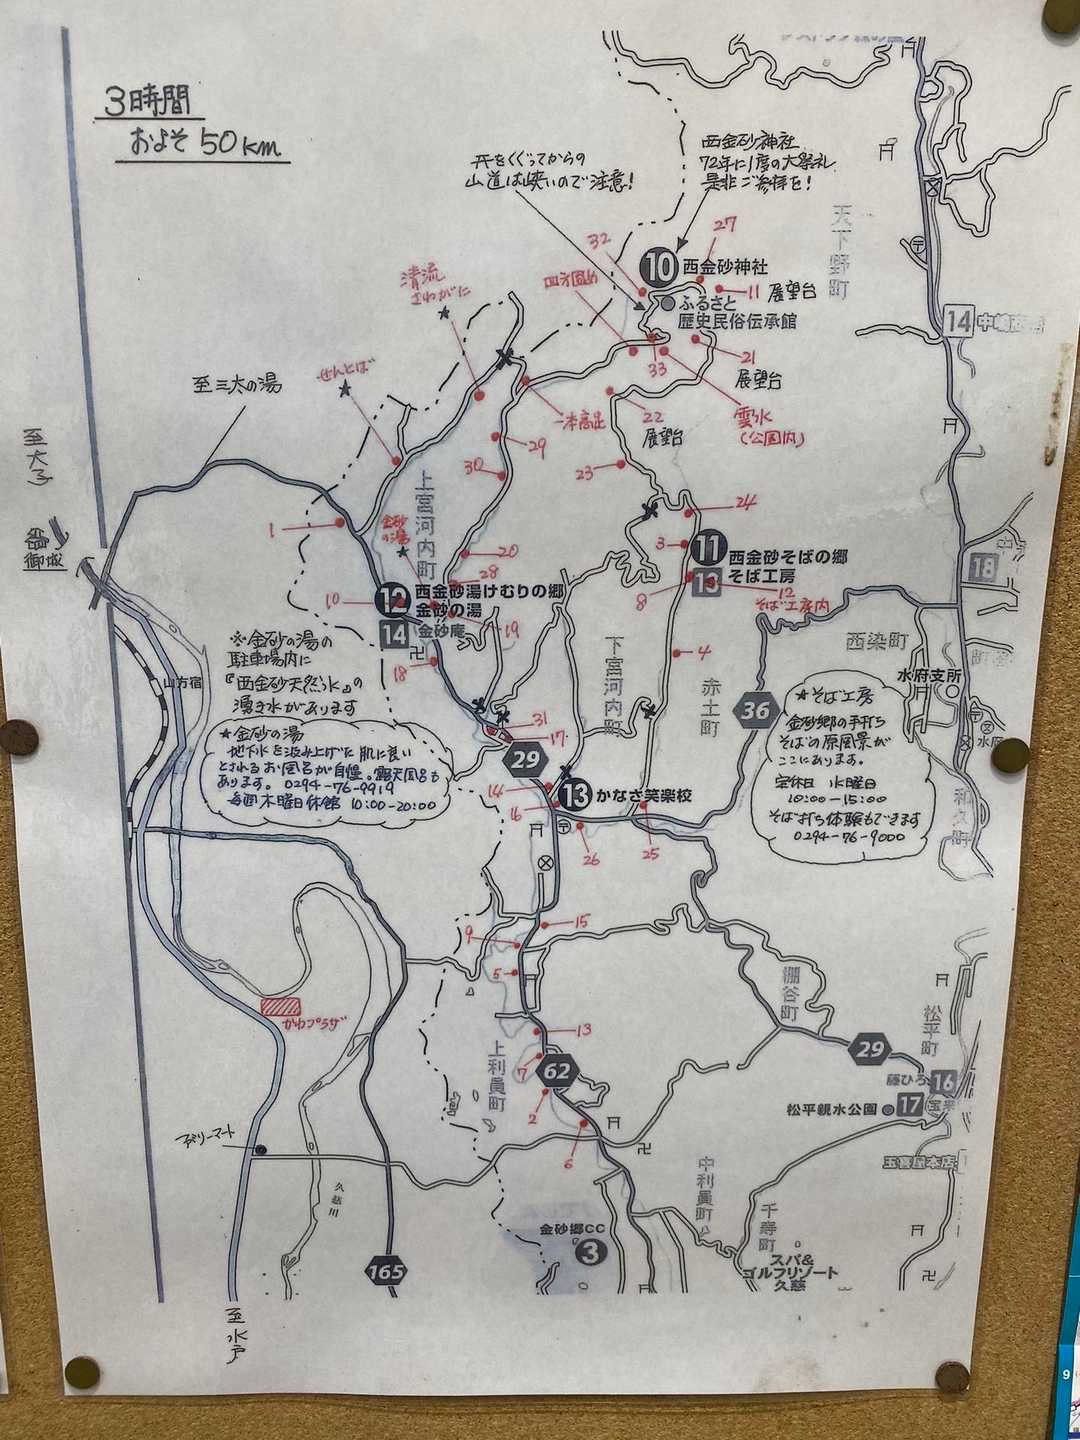 3時間
およそ50km
开をくぐってからの
山道は狭いので注意!
西金砂神社
72年に1度の大祭礼
是非ご参拝を!
天下野町
27
32
10
西金砂神社
11
展望台
ふるさと
歴史民俗伝承館
清流
さわがに
14
せんとば
至三太の湯
33
21
展望台
雲水
(公園内)
22
展望台
29
30
23
至大子
御城
1
上宮河内町
金砂
の湯
24
3
11
西金砂そばの郷
そば工房
13
12
そば工房内
8
18
20
28
10
12
西金砂湯けむりの郷
金砂の湯
14
金砂庵
19
18
4
下宮河内町
赤土町
西染町
水府支所
36
山方宿
※金砂の湯の
駐車場内に
『西金砂天然水』の
湧き水があります
★金砂の湯
地下水を汲み上げた肌に良い
とされるお風呂が自慢。露天風呂も
あります。0294-76-9919
毎週木曜日休館 10:00-20:00
★そば工房
金砂郷の手打ち
そばの原風景が
ここにあります。
定休日 水曜日
10:00-15:00
そば打ち体験もできます
0294-76-9000
31
17
29
14
16
13
かなさ笑楽校
26
25
和久町
15
9
5
13
7
62
2
6
上利員町
棚谷町
松平町
29
藤ひろ
16
松平親水公園
17
かわプラザ
久慈川
中利員町
千寿町
玉喜屋本店
金砂郷CC
3
スパ&
ゴルフリゾート
久慈
165
至水戸
9